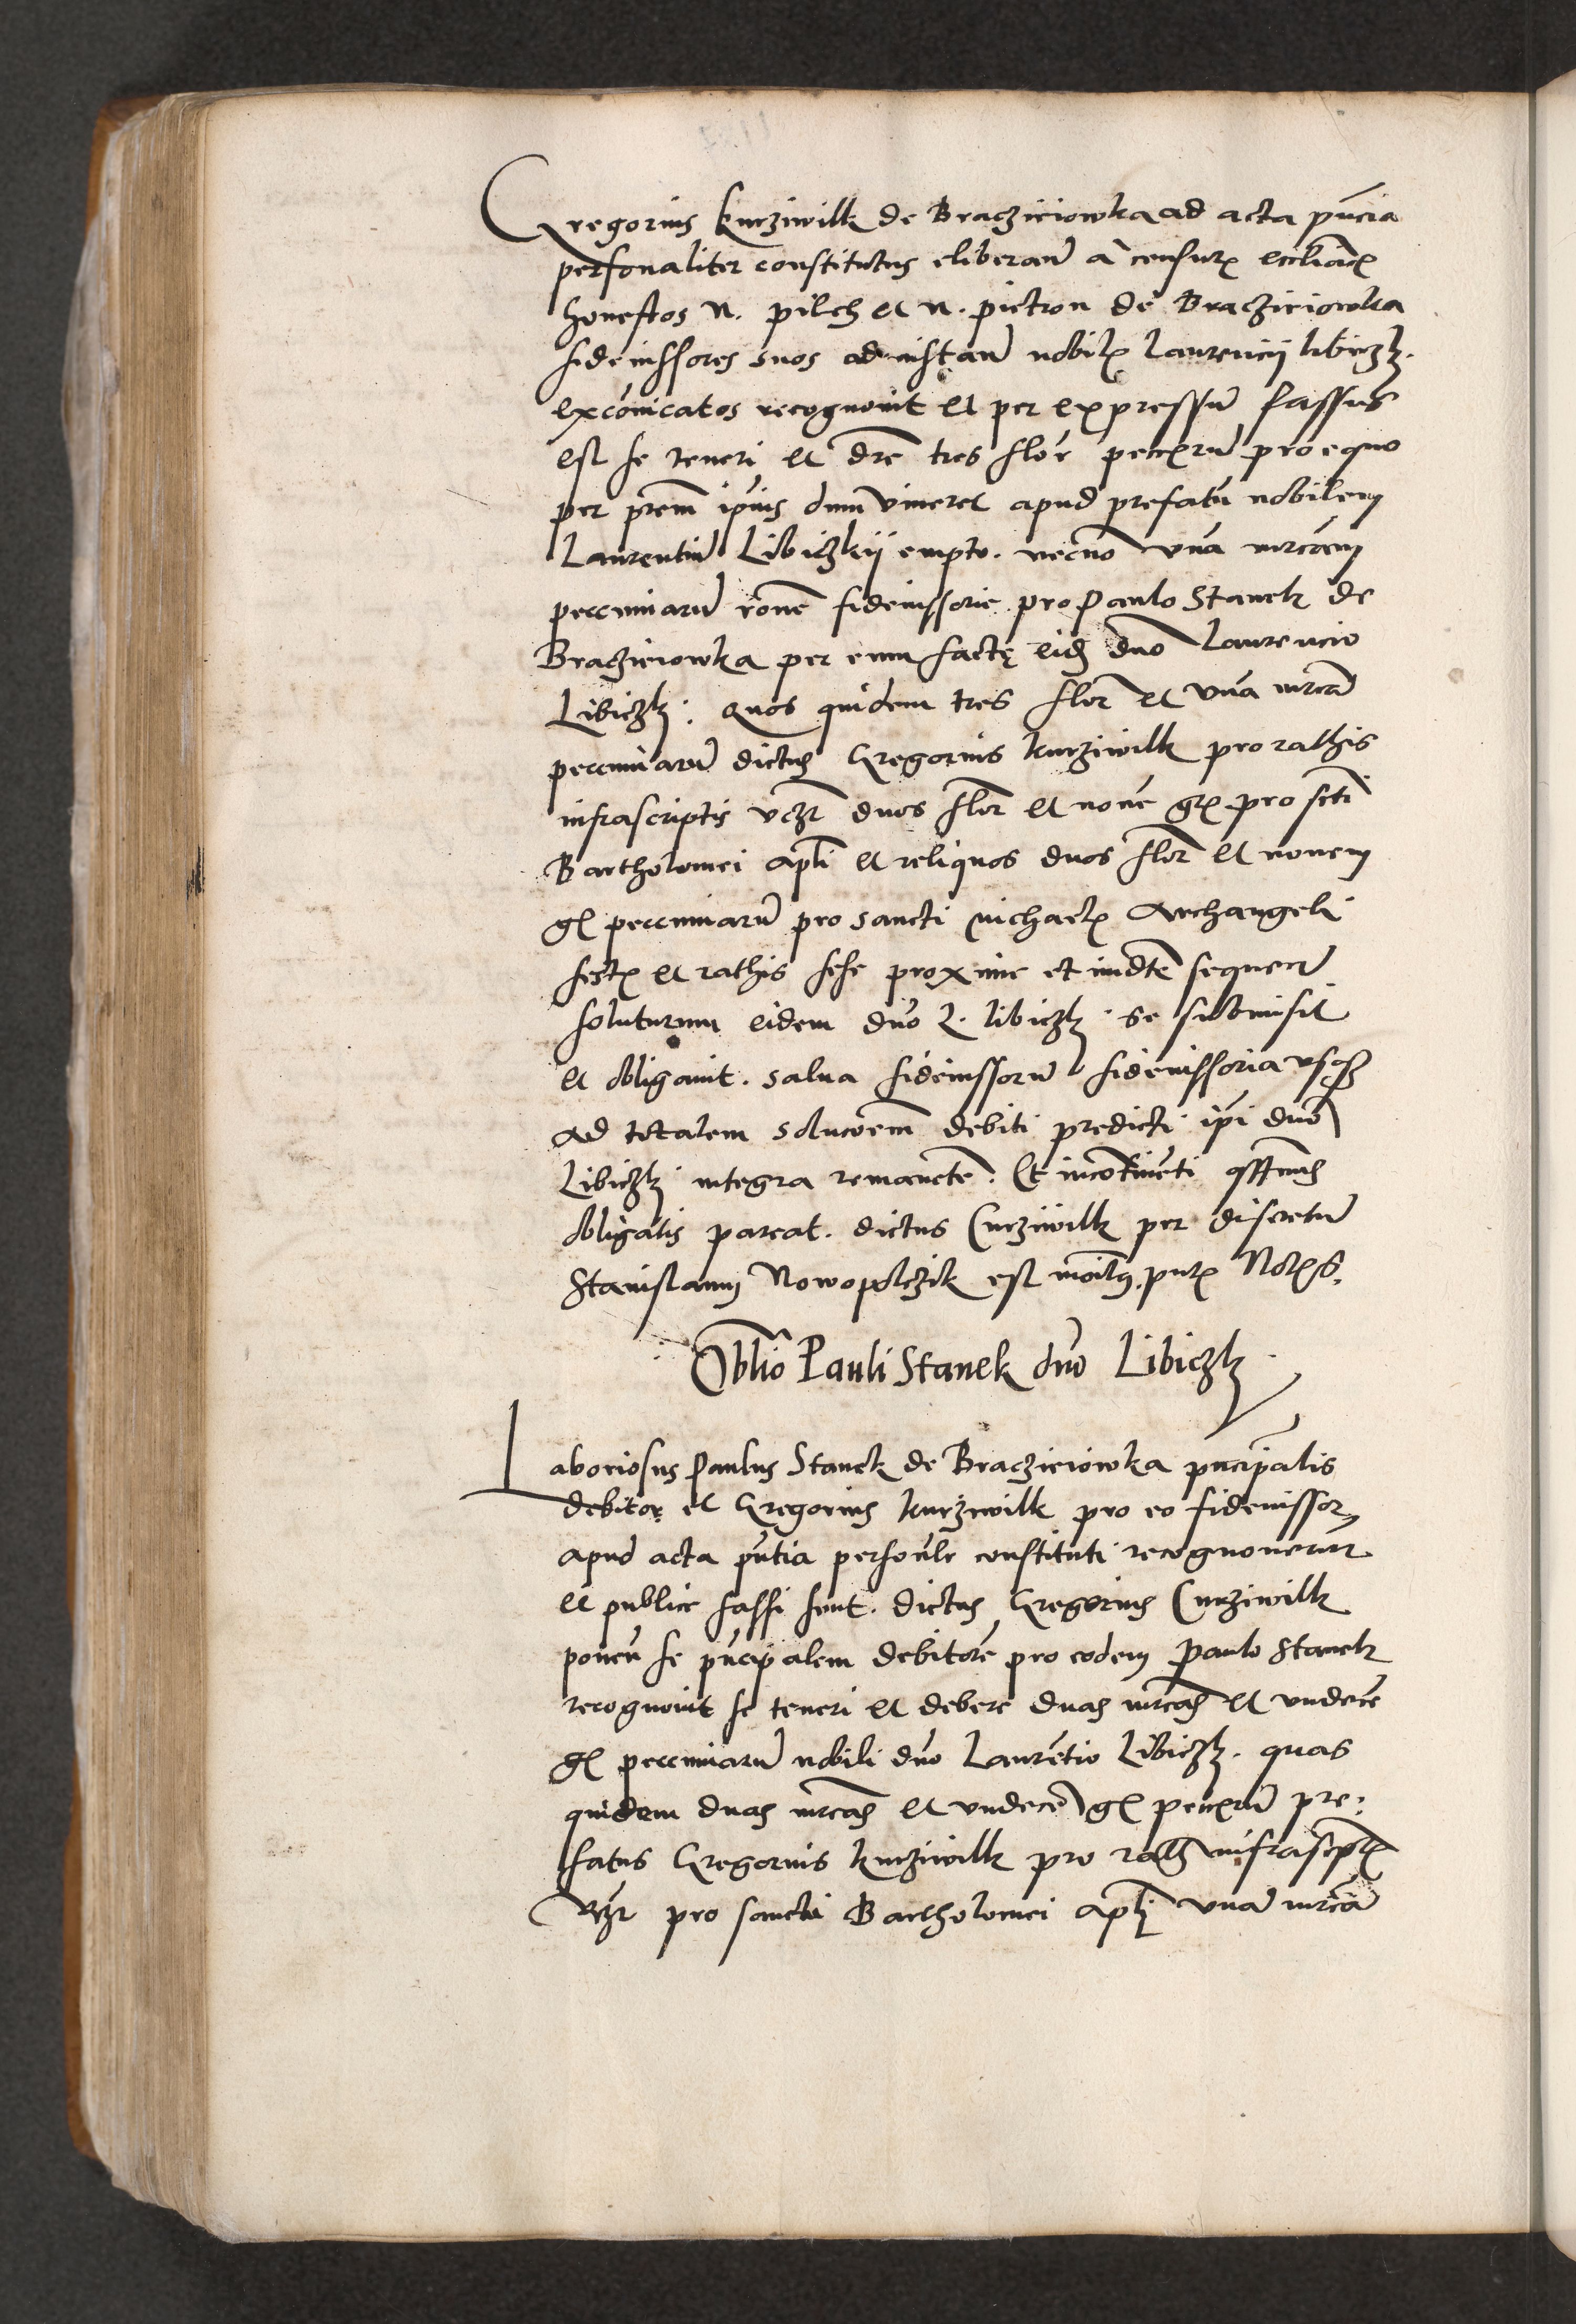 Gregorius kurziwilk de Bracziciowka ad acta pñcia
personaliter constitutus eliberanͫ a censurꝭ eccliacꝭ
honestos N. pilch et N. pietron de Bracziciowka
fideiussores suos ad instanͫ nobilꝭ Laurencij libiczk̃.
excõicatos recognovit et per expressum̃ fassus
est se teneri et dr̃e tres flor̃ pecc̃rum̃ pro equo
per prem̃ ipsius dum viveret apud prefatũ nobilem
Laurentiũ Libiczkij empto. necno͂ una͂ mrca͂m
peccuniarũ rõne fideiussorie pro Paulo Stanek de
Bracziciowka per eum factę eid̃ dño Laurencio
Libiczk̃. Quos quidem tres flor̃ et una͂ mrcã
peccuniarũ dictus Gregorius kurziwilk pro rathis
infrascriptis vcz̃ duos flor̃ et nove͂ grꝭ pro scti
Bartholomei apl̃i et reliquos duos flor̃ et novem
gꝭ peccuniarũ pro sancti michaelꝭ Archangeli
festꝭ et rathis sese proxime et imdte͂ sequenͫ
soluturum eidem dño L. libiczk̃ se submisit
et obligavit. salva fideiussorũ fideiussoria usqꝫ
ad totalem solucõem debiti predicti ip̃i dño
Libiczk̃ integra remane͂te. Et incontine͂ti
obligatis pareat. dictus Curziwilk per discretũ
Stanislaum Nowopolczik est monitꝰ. pntꝭ Notꝭ.
Obl̃io Pauli Stanek dño Libiczk̃
Laboriosus Paulus Stanek de Bracziciowka pncipalis
debitor et Gregorius kurziwilk pro eo fideiussor
apud acta pñtia persoñlr constituti recognoverũt
et publice fassi sunt. dictus Gregorius Curziwilk
ponen̄ se pñcipalem debitore͂ pro eodem Paulo Stanek
recognovit se teneri et debere duas mrcas̃ et undece͂
gꝭ peccuniarũ nobili dño Laure͂tio Libiczk̃. quas
quidem duas mrcas̃ et undece͂ gꝭ pecc̃rum̃ pre:
fatus Gregorius kurziwilk pro rath̃ infrascptꝭ
vcz̃ pro sancti Bartholomei apl̃i unã mrcã